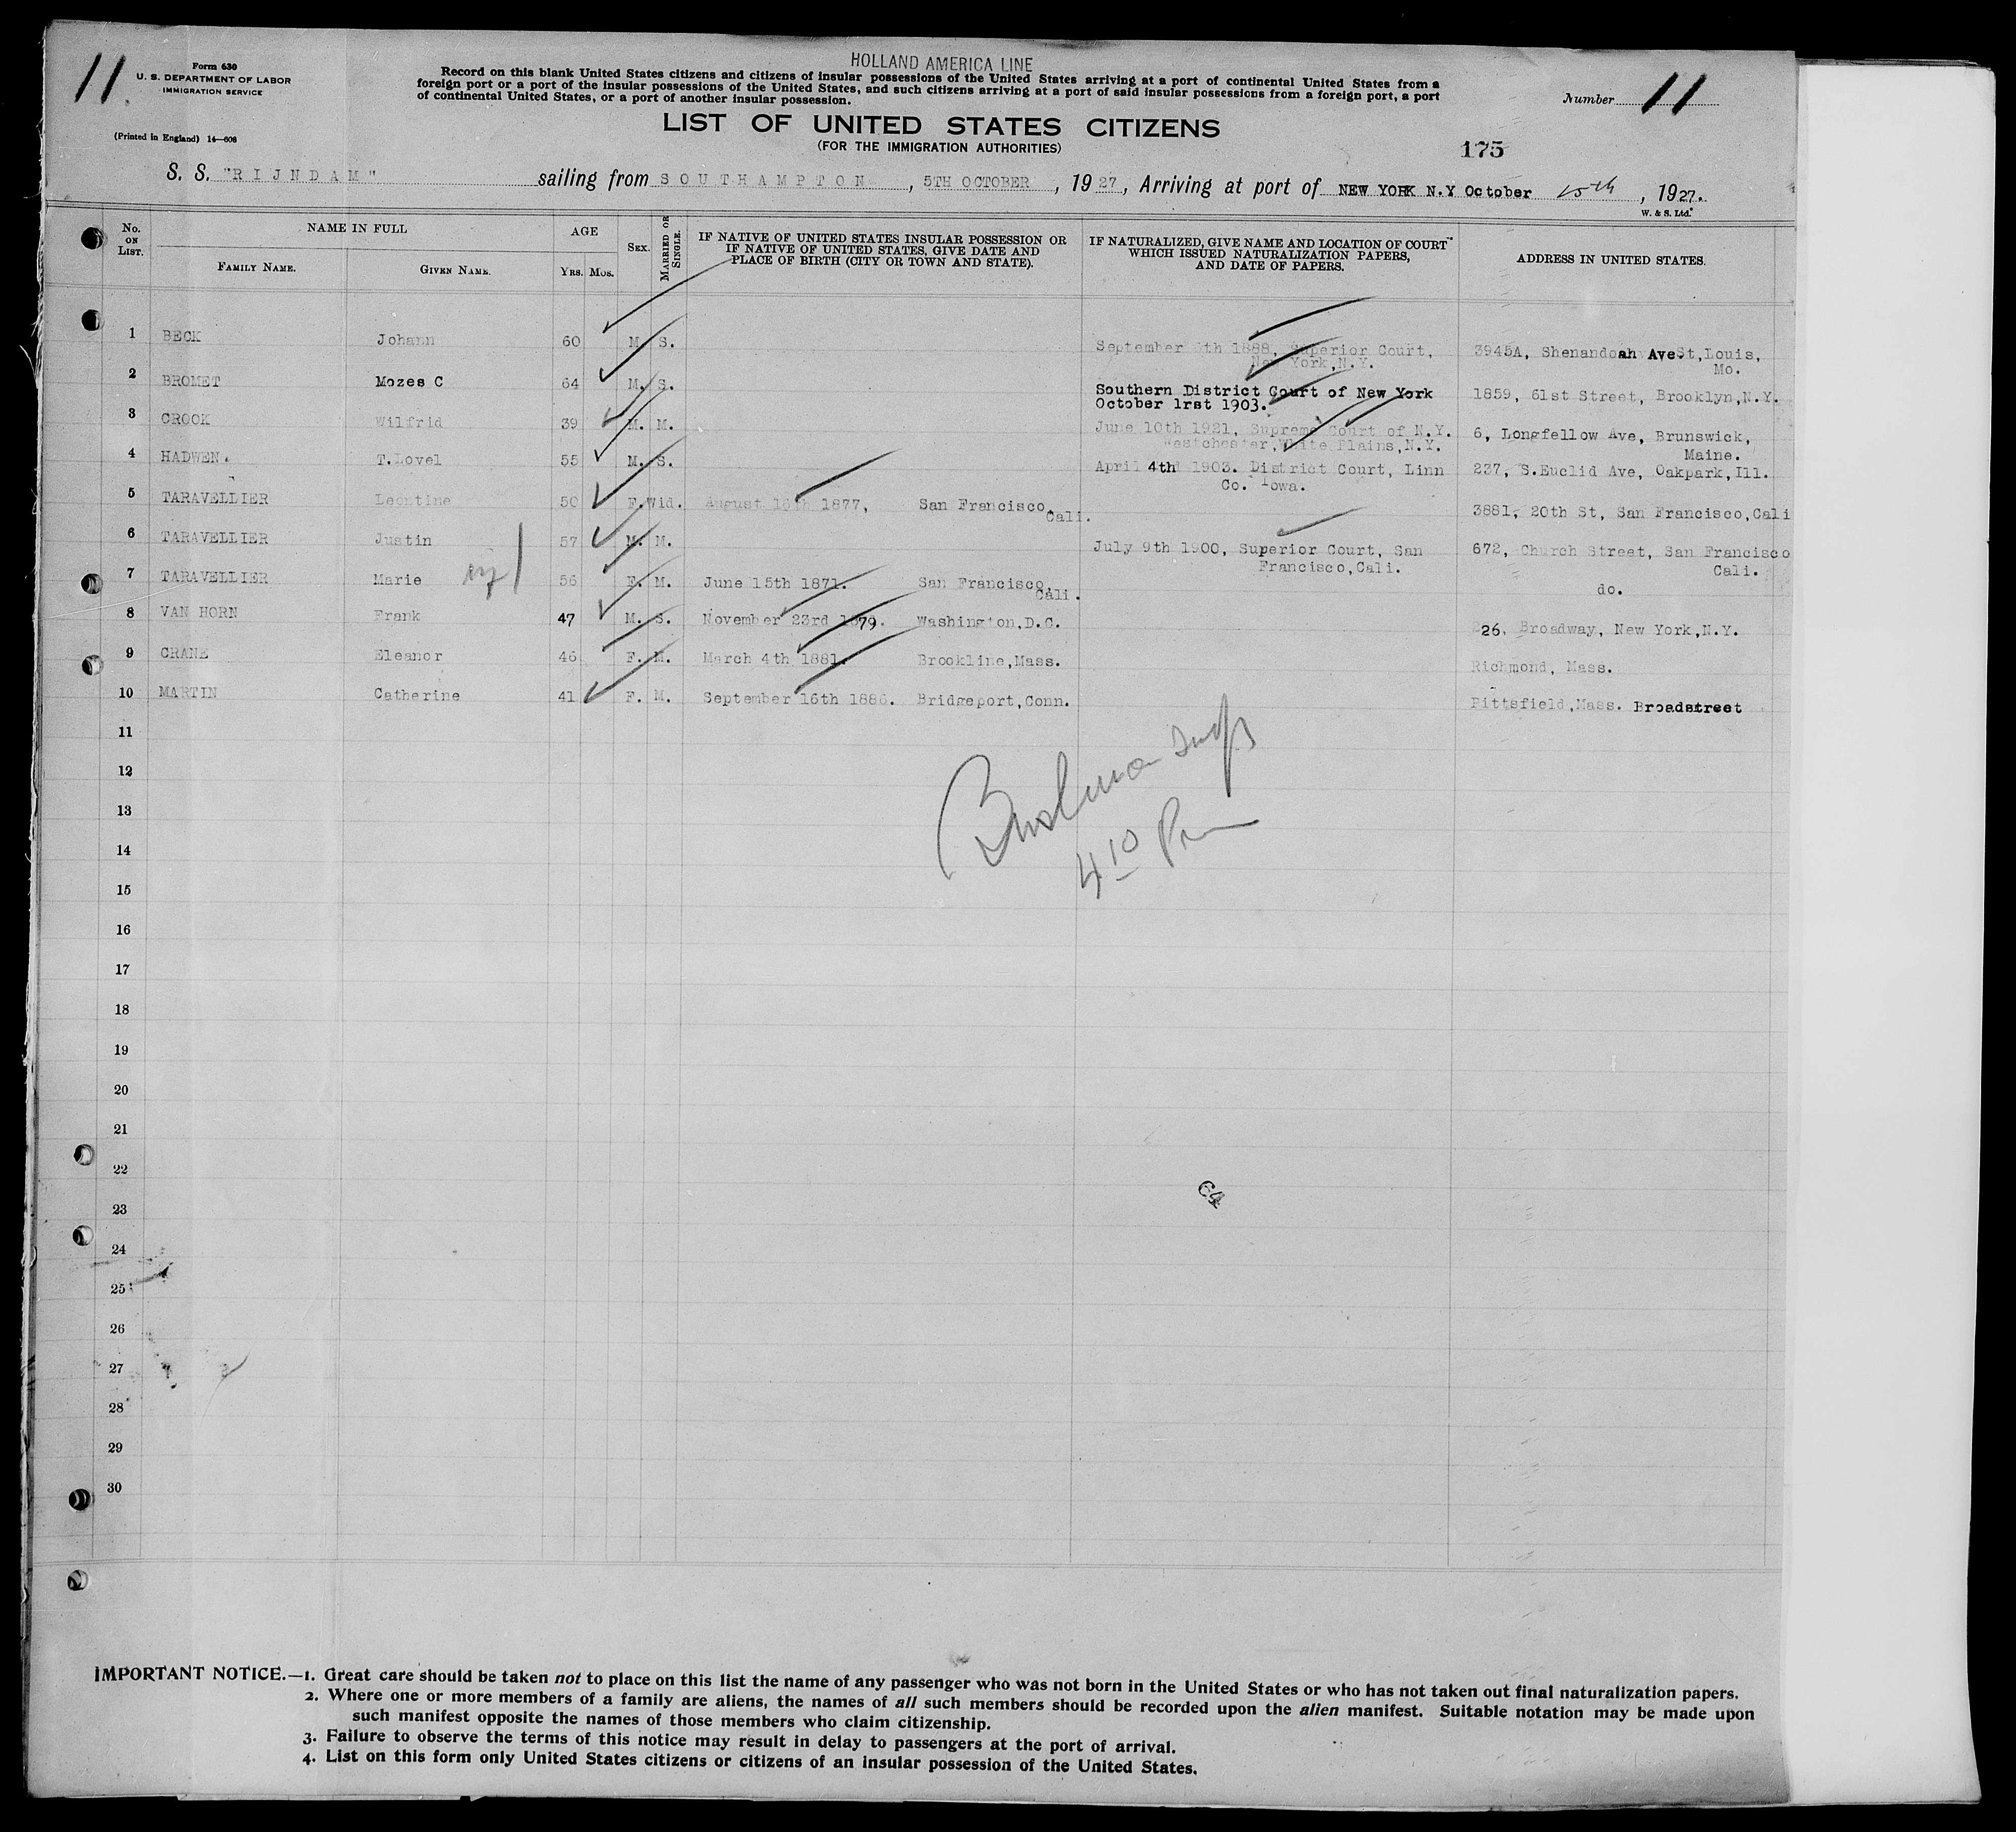 HOLLAND AMERICA LINE
11
Form 630
U. S. DEPARTMENT OF LABOR
IMMIGRATION SERVICE
(Printed in England) 14—608
Record on this blank United States citizens and citizens of insular possessions of the United States arriving at a port of continental United States from a
foreign port or a port of the insular possessions of the United States, and such citizens arriving at a port of said insular possessions from a foreign port, a port
of continental United States, or a port of another insular possession.
Number 11
LIST OF UNITED STATES CITIZENS
(FOR THE IMMIGRATION AUTHORITIES)
175
S. S. "RIJNDAM" sailing from SOUTHAMPTON, 5TH OCTOBER, 1927, Arriving at port of NEW YORK N.Y October 15th, 1927.
W. & S. Ltd.
No. ON LIST.
NAME IN FULL
FAMILY NAME. GIVEN NAME.
AGE
YRS. MOS.
SEX.
MARRIED OR SINGLE.
IF NATIVE OF UNITED STATES INSULAR POSSESSION OR
IF NATIVE OF UNITED STATES, GIVE DATE AND
PLACE OF BIRTH (CITY OR TOWN AND STATE).
IF NATURALIZED, GIVE NAME AND LOCATION OF COURT
WHICH ISSUED NATURALIZATION PAPERS,
AND DATE OF PAPERS.
ADDRESS IN UNITED STATES.
1 BECK Johann 60 M. S. September th 1888, Superior Court, 3945A, Shenandoah Ave St,Louis,
New York,N.Y. Mo.
2 BROMET Mozes C 64 M. S. Southern District Court of New York 1859, 61st Street, Brooklyn,N.Y.
October 1rst 1903.
3 CROOK Wilfrid 39 M. M. June 10th 1921, Supreme Court of N.Y. 6, Longfellow Ave, Brunswick,
Westchester,White Plains,N.Y. Maine.
4 HADWEN. T.Lovel 55 M. S. April 4th 1903. District Court, Linn 237, S.Euclid Ave, Oakpark,Ill.
Co. Iowa.
5 TARAVELLIER Leontine 50 F. Wid. August 16th 1877, San Francisco, 3881, 20th St, San Francisco,Cali
Cali.
6 TARAVELLIER Justin 57 M. M. July 9th 1900, Superior Court, San 672, Church Street, San Francisco
Francisco,Cali. Cali.
7 TARAVELLIER Marie 56 F. M. June 15th 1871. San Francisco, do.
Cali.
8 VAN HORN Frank 47 M. S. November 23rd 1879. Washington,D.C. 26, Broadway, New York,N.Y.
9 CRANE Eleanor 46 F. M. March 4th 1881. Brookline,Mass. Richmond, Mass.
10 MARTIN Catherine 41 F. M. September 16th 1886. Bridgeport,Conn. Pittsfield,Mass. Broadstreet
11
12
13
14
4 10 Pm
15
16
17
18
19
20
21
22
23
24
25
26
27
28
29
30
IMPORTANT NOTICE.—1. Great care should be taken not to place on this list the name of any passenger who was not born in the United States or who has not taken out final naturalization papers.
2. Where one or more members of a family are aliens, the names of all such members should be recorded upon the alien manifest. Suitable notation may be made upon
such manifest opposite the names of those members who claim citizenship.
3. Failure to observe the terms of this notice may result in delay to passengers at the port of arrival.
4. List on this form only United States citizens or citizens of an insular possession of the United States.